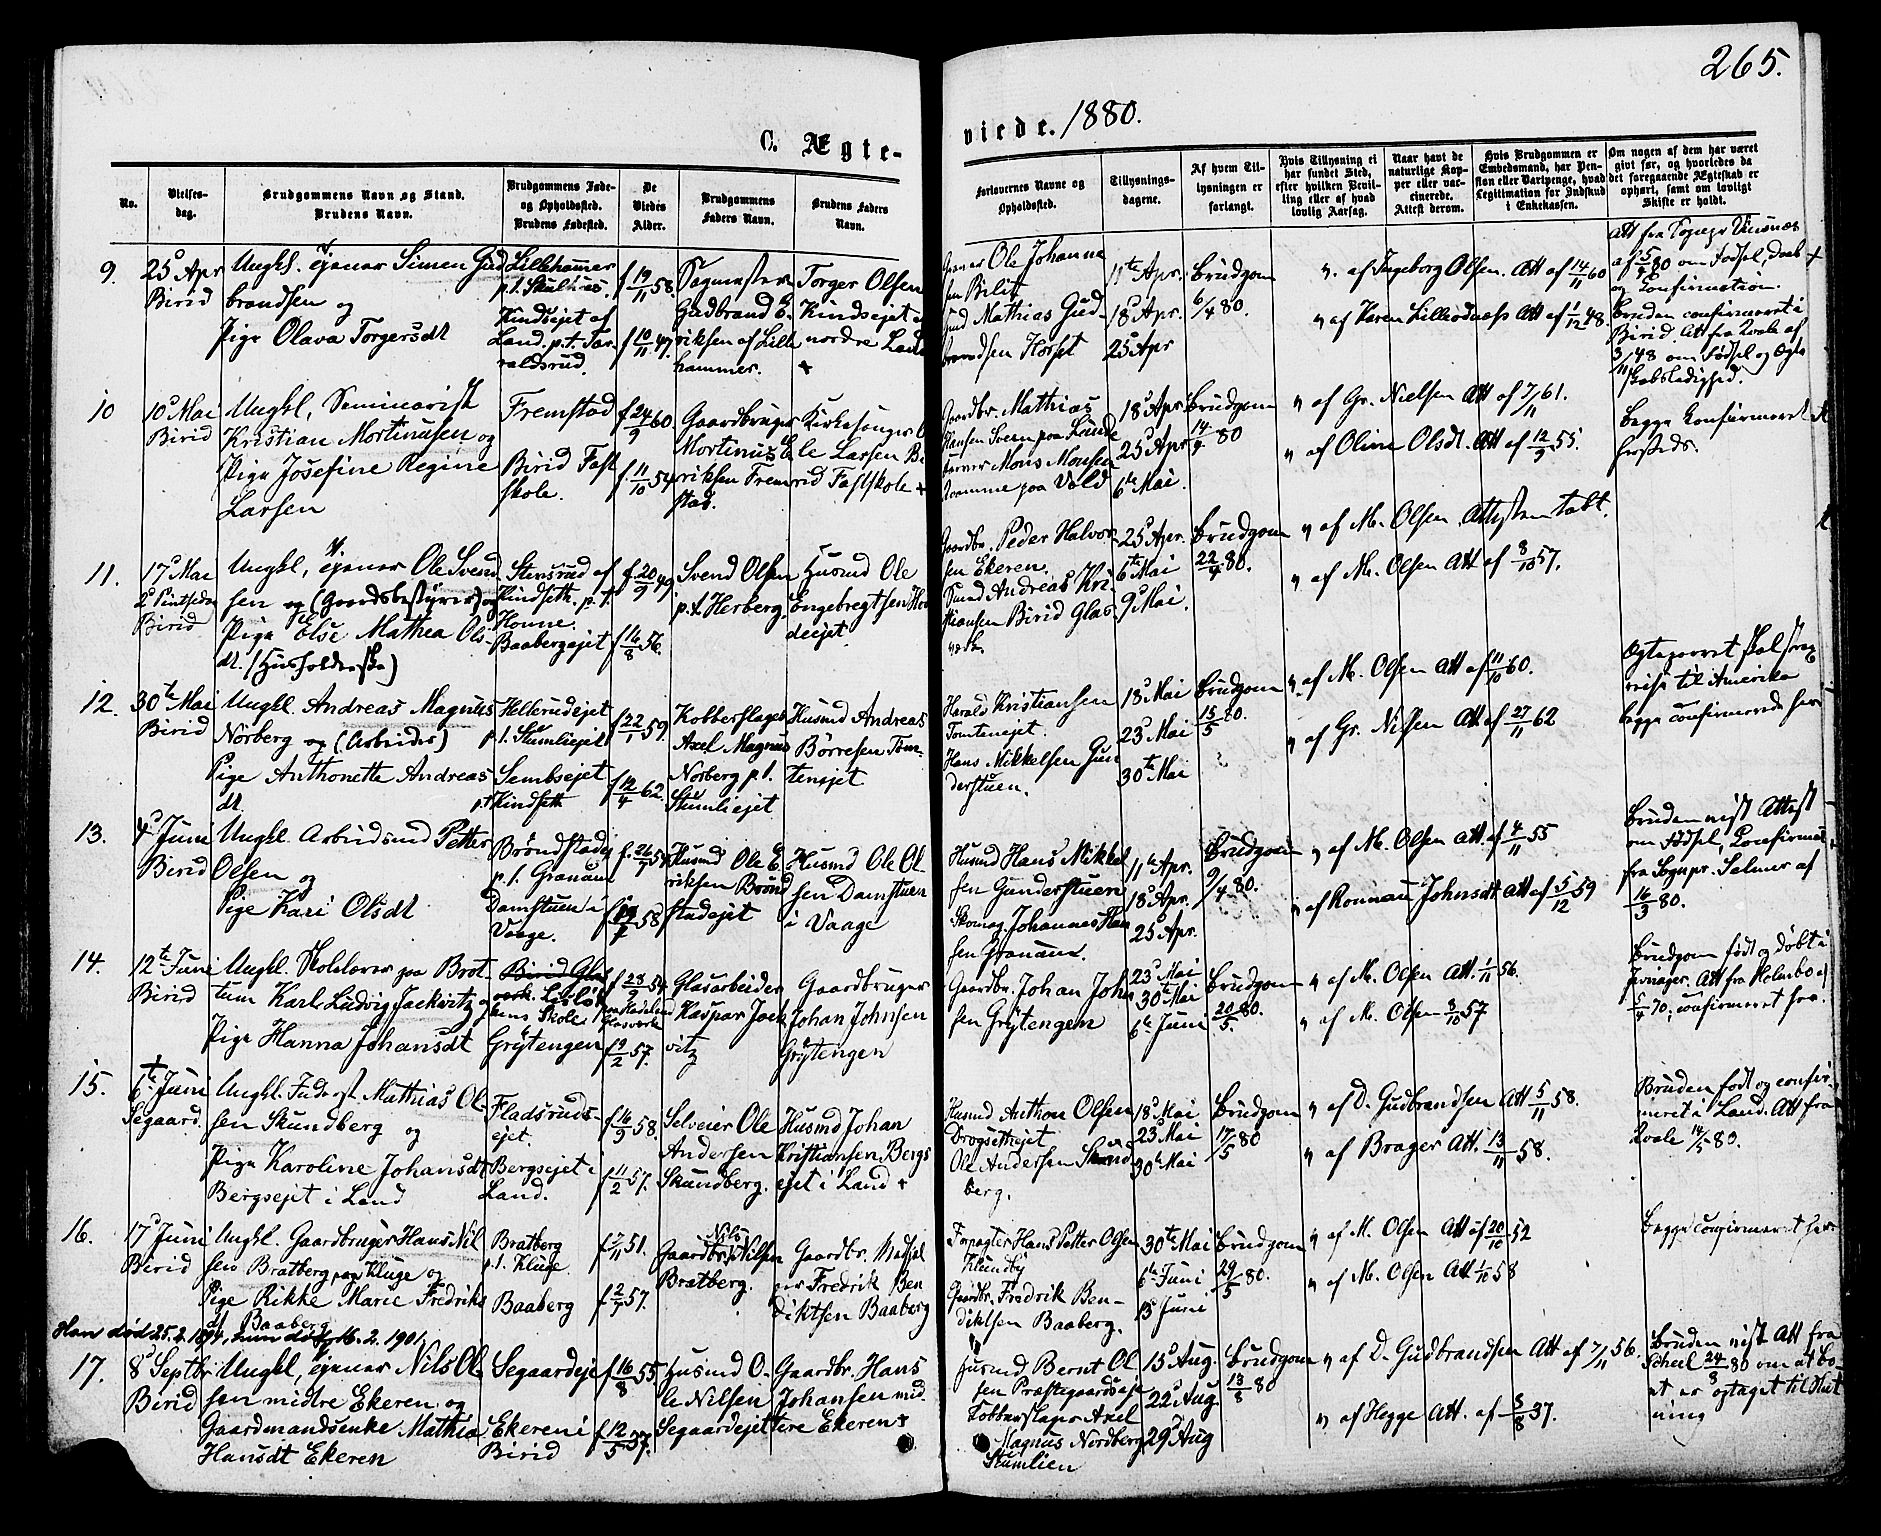 265.
C. Ægte-
viede. 1880.
No.
Vielses-
dag.
Brudgommens Navn og Stand.
Brudens Navn.
Brudgommens Føde-
og Opholdssted.
Brudens Fødested.
De
Viedes
Alder.
Brudgommens
Faders Navn.
Brudens Faders
Navn.
Forlovernes Navne og
Opholdssted.
Tillysnings-
dagene.
Af hvem Til-
lysningen er
forlangt.
Hvis Tillysning ei
har fundet Sted,
efter hvilken Bevil-
ling eller af hvad
lovlig Aarsag.
Naar havt de
naturlige Kop-
per eller vac-
cinerede.
Attest derom.
Hvis Brudgommen er
Embedsmand, har Pen-
sion eller Vartpenge, hvad
Legitimation for Indskud
i Enkekassen.
Om nogen af dem har været
gift før, og hvorledes da
det foregaaende Ægteskab er
ophørt, samt om lovligt
Skifte er holdt.
9.
25d Apr
Birid
Ungkl. tjener Simen Gud
brandsen og
Pige Olava Torgersdt
Lillehammer
p.t. Skulhus.
Kindsejet af
Land. p.t. Tar-
raldsrud.
f 19/11 58.
f 10/11 47.
Sagmester
Gudbrand E-
riksen af Lille
hammer.
Torger Olsen
Kindsejet i
nordre Land
+
Ole Johanne
sen Bilit
Mathias Gud-
brandsen Horset
11te Apr.
18d Apr.
25d Apr
Brudgom
6/4 80.
" af Ingeborg Olsen. Att af 14/11 60
" af Karen Lilleodnes Att af 1/12 48.
Att fra Sognepr Vinsnes
af 5/4 80 om Fødsel, Daab +
og Konfirmation.
Bruden confirmeret i
Birid. Att fra Kvale af
3/11 48 om Fødsel og Ægte
skabsledighed.
10
10d Mai
Birid
Ungkl, Seminarist
Kristian Mortinusen og
Pige Josefine Regine
Larsen
Fremstad
Birid Fast
skole.
f 24/9 60
f. 11/10 54
Gaardbruger
Mortinus E-
riksen Frem
stad.
Kirkesanger O
le Larsen Bi
rid Fastskole +
Gaardbr. Mathias
Hansen Sveen paa Lunde
Mons Monsen
Kramme paa Vold
18d Apr
25d Apr
6te Mai.
Brudgom
14/4 80
" af Gr. Nielsen Att af 7/11 61.
" af Oline Olsdt. Att af 12/9 55.
Begge Konfirmeret
hersteds.
11.
17d Mai
2d Pintsedag
Birid
Ungkl, tjener Ole Svend
sen og (Gaardsbestyrer) og
Pige Else Mathea Ols-
dt. (Husholderske)
Stensrud af
Kindseth. p.t.
Honne.
Baabergejet
f. 20/9 49
f 16/8 56.
Svend Olsen
p.t. Herberg
Husmd Ole
Engebregtsen Hon
deejet
Gaardbr. Peder Halvor-
sen Ekeren.
Smed Andreas Kri
stiansen Birid Glas-
værk.
25d Apr.
6te Mai
9d Mai.
Brudgom
22/4 80.
" af M. Olsen. Attesten tabt.
" af M. Olsen Att af 8/10 57.
12.
30te Mai
Birid
Ungkl. Andreas Magnus
Norberg og (Arbeider)
Pige Anthonette Andreas
dt.
Hellerudejet
p.t. Stumliejet
Sembsejet
p.t. Kindseth
f 22/1 59.
f 12/4 62.
Kobberslager
Axel Magnus
Norberg p.t.
Stumliejet
Husmd Andreas
Børresen Tom-
tensjet
Harald Kristiansen
Tomtenejet.
Hans Mikkelsen Gun
derstuen.
18d Mai
23d Mai
30te Mai
Brudgom
15/5 80.
" af M. Olsen Att af 11/10 60.
" af Gr. Nissen Att af 27/11 62
Ægteparret skal strax
reise til Amerika
begge confirmerede her
13.
4d Juni
Birid
Ungkl. Arbeidsmd Petter
Olsen og
Pige Kari Olsdt
Brøndstadej
p.t. Granum
Damstuen i
Vaage.
f. 26/7 54
58
Husmd Ole E-
riksen Brønd
stadejet
Husmd Ole Ol-
sen Damstuen
i Vaage
Husmd Hans Mikkel
sen Gunderstuen
Skomag. Johannes Han
sen Granum.
11te Apr.
18d Apr.
25d Apr.
Brudgom
9/4 80.
" af M. Olsen Att af 4/11 55
" af Ronnau Johnsdt Att af 5/12 59
Bruden vist Attest
om Fødsel, Confirmat
fra Sognepr. Selmer af
16/3 80.
14.
12te Juni
Birid
Ungkl. Skolelærer paa Brot
tum Karl Ludvig Jackvitz og
Pige Hanna Johansdt
Birid Glas
værk. Lisløk-
kens Skole.
Glasværk
Grytengen
f 28/2 54
f 9/2 57.
Glasarbeider
Kaspar Jack
vitz
Gaardbruger
Johan Johnsen
Grytengen
Gaardbr. Johan John
sen Grytengen
23d Mai
30te Mai
6te Juni
Brudgom
20/5 80.
" af M. Olsen Att. 1/11 56.
" af M. Olsen 8/10 57
Brudgom født og døbt i
Jevnager. Att fra Holmboe af
5/4 70; confirmeret her.
15.
6te Juni
Segaard.
Ungkl. Inderst Mathias Ol-
sen Skundberg og
Pige Karoline Johansdt
Bergsejet i Land
Fladsruds-
ejet.
Bergsejet i
Land.
f 16/9 58.
f 11/2 57.
Selveier Ole
Andersen
Skundberg.
Husmd Johan
Kristiansen Bergs
ejet i Land +
Husmd Anthon Olsen
Drogsethejet
Ole Andersen Skund
berg.
18d Mai
23d Mai
30te Mai
Brudgom
17/5 80
" af D. Gudbrandsen Att 5/11 58.
" af Brager Att. 13/11 58.
Bruden født og confir-
meret i Land. Att fra
Kvale 14/5 80.
16.
17d Juni
Birid
Ungkl. Gaardbruger Hans Nil
sen Bratberg paa Kluge og
Pige Rikke Marie Fredriks
dt Baaberg
Bratberg
p.t. Kluge.
Baaberg
f 7/11 51.
f 2/7 57.
Gaardbr. Nils Nilsen
Bratberg.
Gaardbr. Mathi
as Fredrik Ben
diktsen Baaberg
Forpagter Hans Petter Olsen
Klundby
Gaardbr. Fredrik Ben-
diktsen Baaberg.
30te Mai
6te Juni
13 Juni
Brudgom
29/5 80.
" af M. Olsen Att af 20/10 52
" af M. Olsen Att 1/10 58
Begge confirmeret her
Han død 25.2.1894, hun død 16.2.1901.
17.
8d Septbr
Birid
Ungkl, tjener Nils Ol-
sen midtre Ekeren og
Gaardmandsenke Mathia
Hansdt Ekeren
Segaardeje
Ekeren i
Birid
f 16/8 55
f 12/5 37.
Husmd O-
le Nilsen
Segaardejet
Gaardbr. Hans
Johansen mid
tre Ekeren +
Husmd Bernt Ol
sen Præstegaardseje
Kobberslager Axel
Magnus Nordberg
Stumlien
15d Aug.
22d Aug
29d Aug
Brudgom
13/8 80
" af D. Gudbrandsen Att af 7/11 56.
" af Hegge Att. af 3/8 37.
Bruden vist Att fra
Scheel 24/8 80 om at bo-
et er optaget til Skif
ning